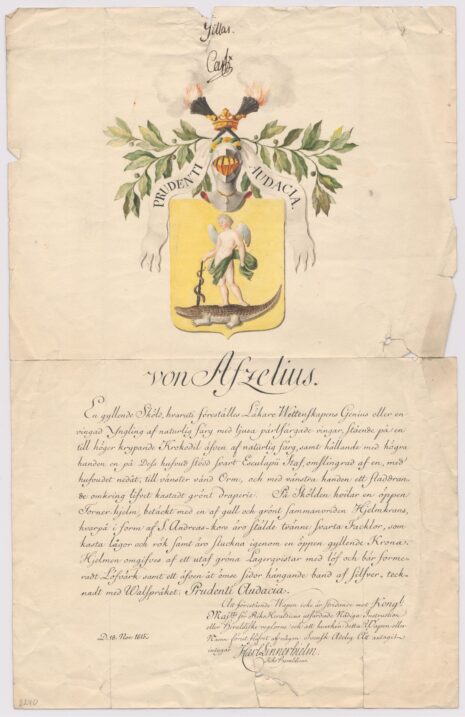 Gillas.
Carl
PRUDENTI AUDACIA.
von Afzelius.
En gyllende Sköld, hvaruti föreställes Läkare Wettenskapens Genius eller en
vingad Yngling af naturlig färg med ljusa pärlfärgade vingar, stående på en
till höger krypande Krokodil äfven af naturlig färg, samt hållande med högra
handen en på Dess hufvud stödd svart Esculapii Staf, omslingrad af en, med
hufvudet nedåt, till vänster vänd Orm, och med vänstra handen ett fladdran-
de omkring lifvet kastadt grönt draperie. På Skölden hvilar en öppen
Tornerhjelm, betäckt med en af gull och grönt sammanvriden Hjelmkrans,
hvarpå i form af S. Andreas-kors äro stälde tvänne svarta Facklor, som
kasta lågor och rök samt äro stuckna igenom en öppen gyllende Krona.
Hjelmen omgifves af ett utaf gröna Lagerqvistar med löf och bär forme-
radt Löfvärk samt ett äfven åt ömse sidor hängande band af silfver, teck-
nadt med Walspråket: Prudenti Audacia.
Att förestående Wapen icke är stridande mot Kongl.
Maj:ts för Riks Heraldicus utfärdade Nådiga Instruction
eller Heraldiske reglorne, och att hvarken detta Wapen eller
Namn förut blifvit af någon Svensk Adelig Ätt antagit
intygar
D. 18. Nov. 1815.
Karl Linnerhielm
Riks Heraldicus.
2240